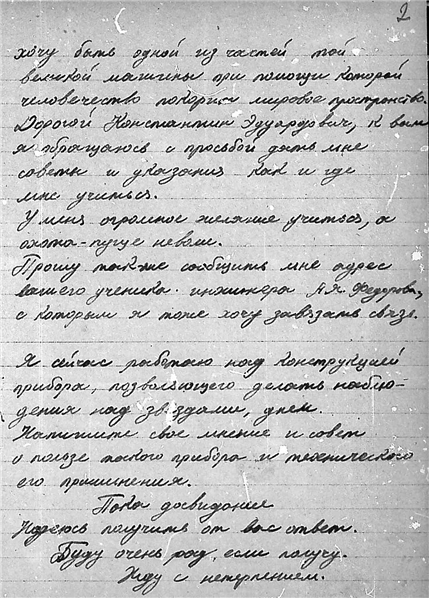 2
хочу быть одной из частей той
великой машины при помощи которой
человечество покорит мировое пространство.
Дорогой Константин Эдуардович, к вам
я обращаюсь с просьбой дать мне
советы и указания как и где
мне учиться.
У меня огромное желание учиться, а
охота-пуще неволи.
Прошу также сообщить мне адрес
вашего ученика инженера А.Я. Федорова,
с которым я тоже хочу завязать связь.
Я сейчас работаю над конструкцией
прибора, позволяющего делать наблю-
дения над звездами, днем.
Напишите свое мнение и совет
о пользе такого прибора и технического
его применения.
Пока досвидание
Надеюсь получить от вас ответ.
Буду очень рад, если получу.
Жду с нетерпением.